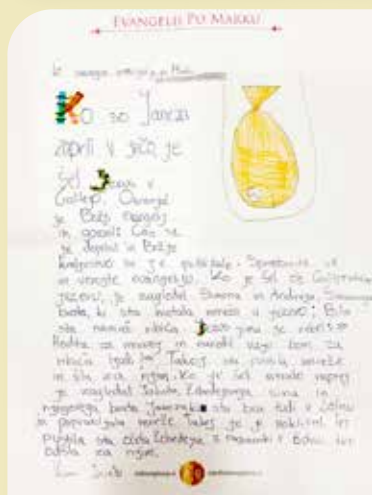 EVANGELIJ PO MARKU
Iz svetega evangelija po Marku
Ko so Janeza
zaprli v ječo je
šel Jezus v
Galilejo. Oznanjal
je Božji evangelij
in govoril Čas se
je dopolnil in Božje
kraljestvo se je približalo. Spreobrnite se
in verujte evangeliju. Ko je šel ob Galilejskem
jezeru, je zagledal Simona in Andreja, Simonovega
brata, ki sta metala mrežo v jezero; Bila
sta namreč ribiča. Jezus jima je rekel:
Hodita za menoj in naredil vaju bom za
ribiča ljudi. Takoj sta pustila mreže
in šla za njim. Ko je šel malo naprej
je zagledal Jakoba Zebedejevega sina in
njegovega brata Janeza, sta bila tudi v čolnu
in popravljala mreže takoj je poklical ter
pustila sta očeta Zebedeja z najemniki v čolnu ter
odšla za njim.